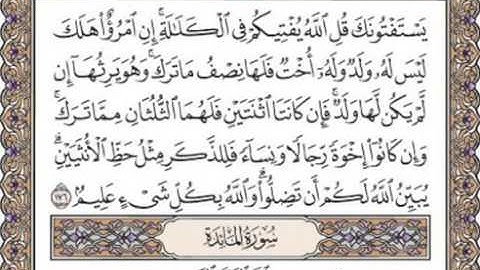 يَسْتَفْتُونَكَ قُلِ ٱللَّهُ يُفْتِيكُمْ فِى ٱلْكَلَٰلَةِ ۚ إِنِ ٱمْرُؤٌا۟ هَلَكَ
لَيْسَ لَهُۥ وَلَدٌ وَلَهُۥٓ أُخْتٌ فَلَهَا نِصْفُ مَا تَرَكَ ۚ وَهُوَ يَرِثُهَآ إِن
لَّمْ يَكُن لَّهَا وَلَدٌ ۚ فَإِن كَانَتَا ٱثْنَتَيْنِ فَلَهُمَا ٱلثُّلُثَانِ مِمَّا تَرَكَ ۚ
وَإِن كَانُوٓا۟ إِخْوَةً رِّجَالًا وَنِسَآءً فَلِلذَّكَرِ مِثْلُ حَظِّ ٱلْأُنثَيَيْنِ ۗ
يُبَيِّنُ ٱللَّهُ لَكُمْ أَن تَضِلُّوا۟ ۗ وَٱللَّهُ بِكُلِّ شَىْءٍ عَلِيمٌۢ ١٧٦
سُورَةُ المَائِدَةِ